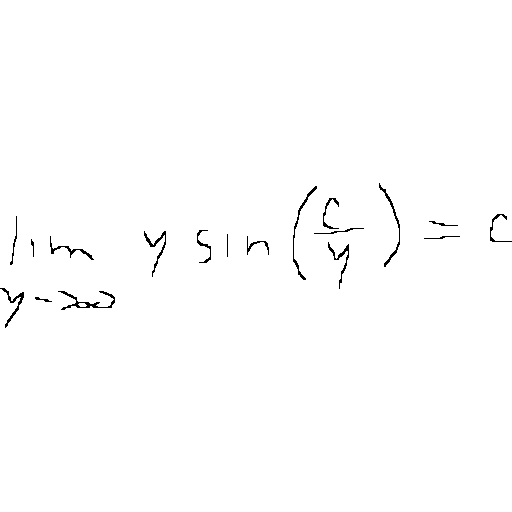 \lim_{y \to \infty} y \sin\left(\frac{c}{y}\right) = c